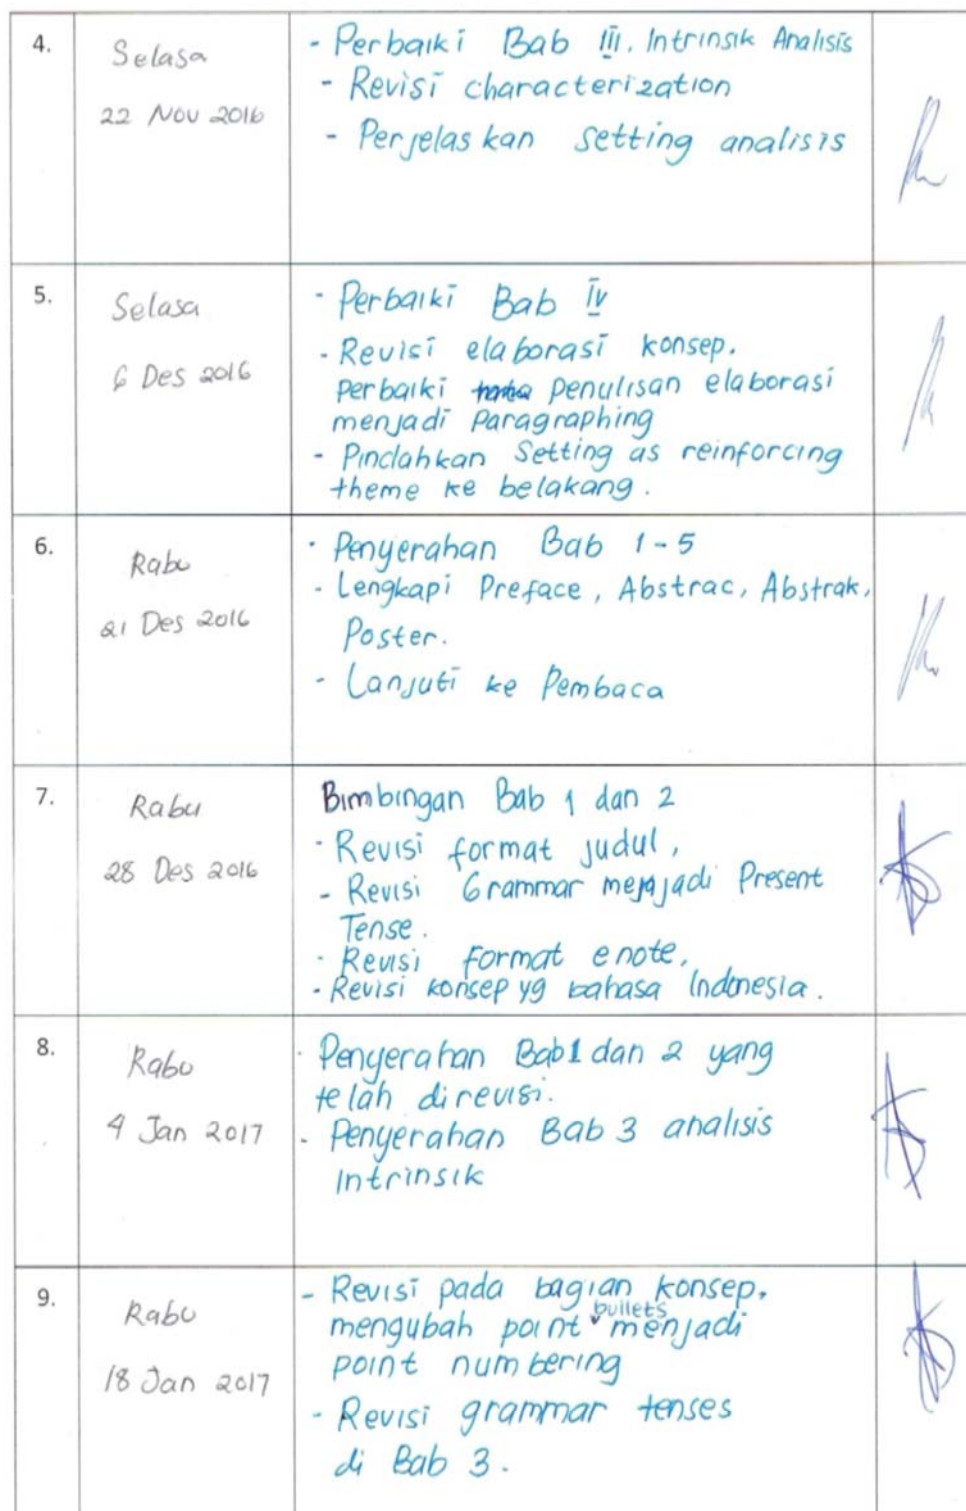 4.
Selasa
22 Nov 2016
- Perbaiki Bab III. Intrinsik Analisis
- Revisi characterization
- Perjelaskan setting analisis
5.
Selasa
6 Des 2016
- Perbaiki Bab IV
- Revisi elaborasi konsep.
Perbaiki penulisan elaborasi
menjadi Paragraphing
- Pindahkan Setting as reinforcing
theme ke belakang.
6.
Rabu
21 Des 2016
- Penyerahan Bab 1-5
- Lengkapi Preface, Abstrac, Abstrak,
Poster.
- Lanjuti ke Pembaca
7.
Rabu
28 Des 2016
Bimbingan Bab 1 dan 2
- Revisi format judul,
- Revisi Grammar menjadi Present
Tense.
- Revisi Format enote,
- Revisi konsep yg bahasa Indonesia.
8.
Rabu
4 Jan 2017
- Penyerahan Bab 1 dan 2 yang
telah direvisi.
- Penyerahan Bab 3 analisis
Intrinsik
9.
Rabu
18 Jan 2017
- Revisi pada bagian konsep,
mengubah point bullets menjadi
point numbering
- Revisi grammar tenses
di Bab 3.